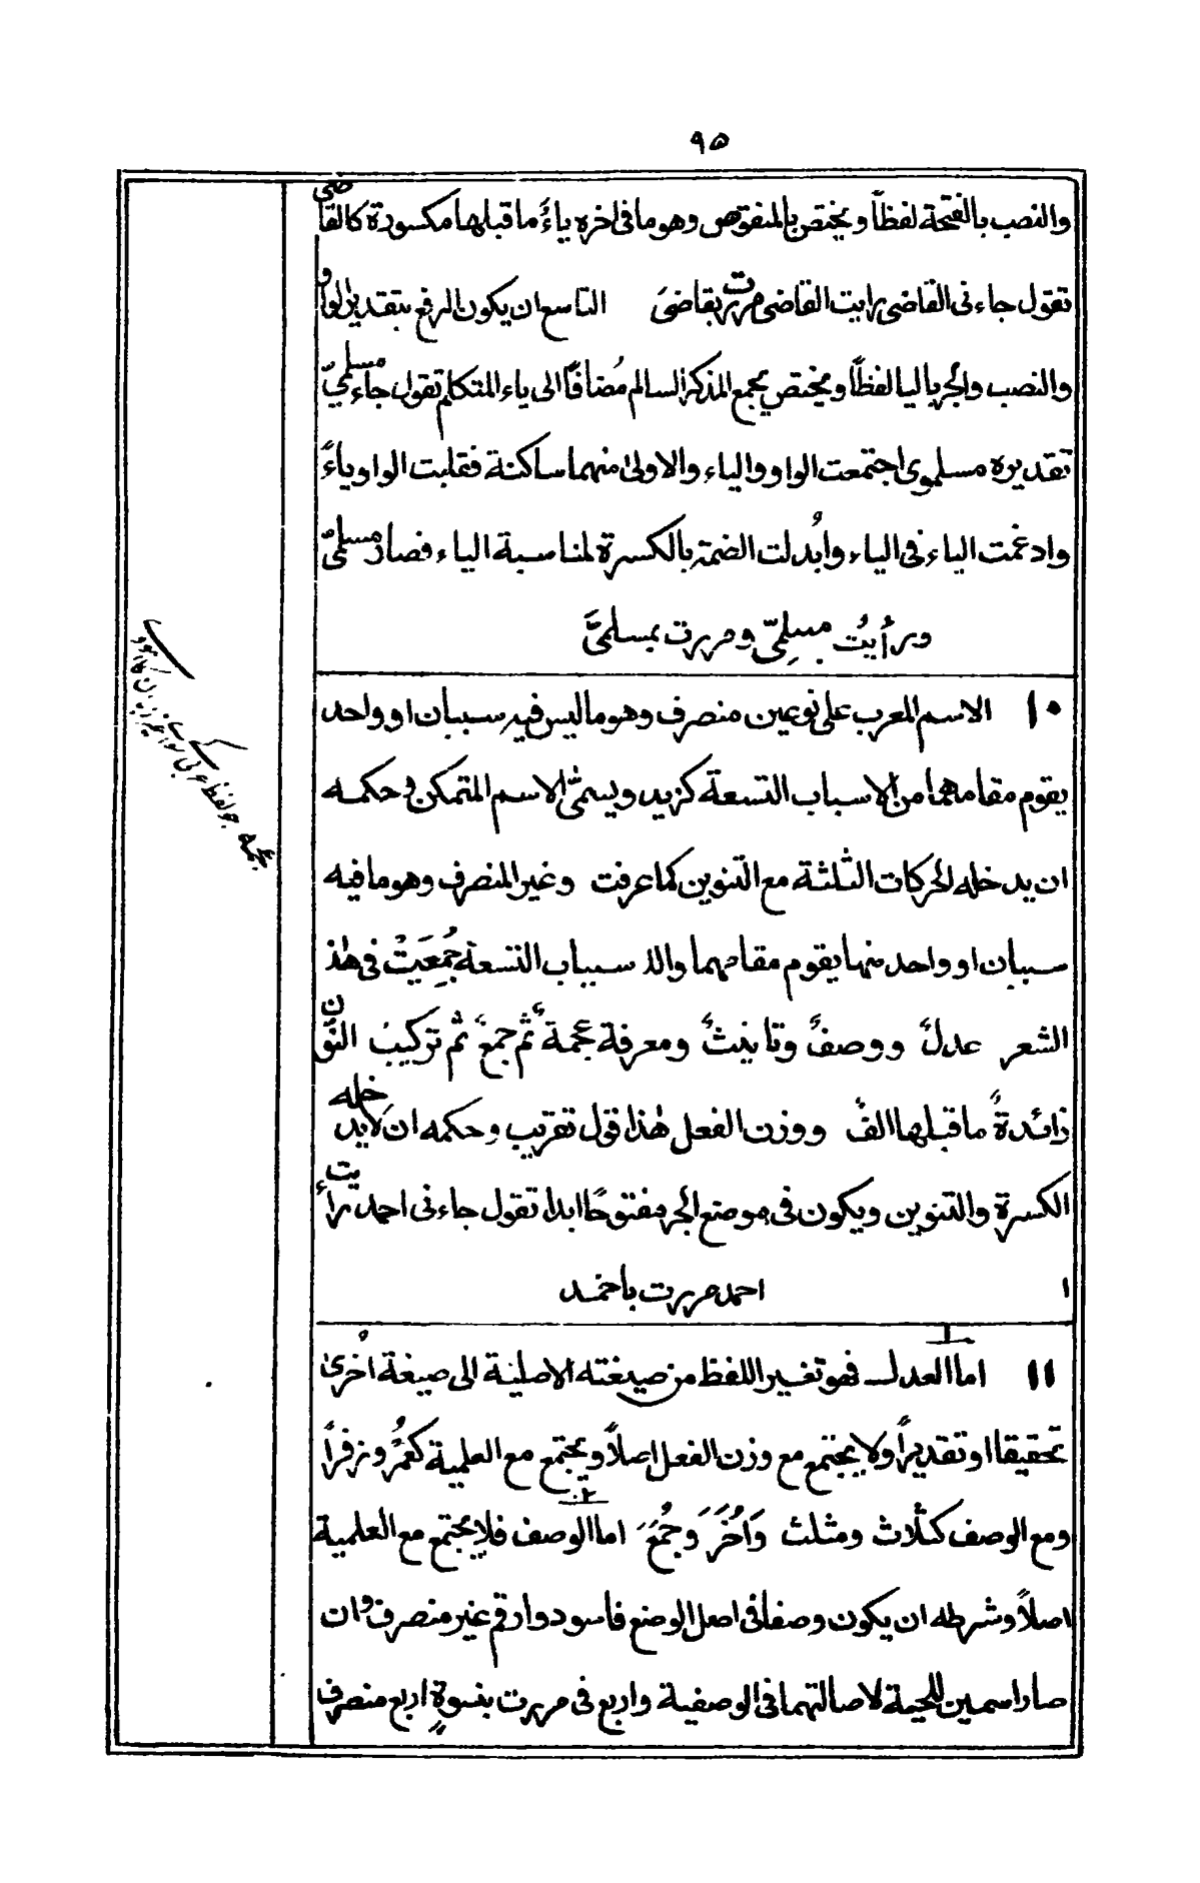 ٩٥
والنصب بالفتحة لفظاً ويختص بالمنقوص وهو ما فى اخره ياءً ما قبلها مكسورة كالقاضى
تقول جاءنى القاضى رايت القاضى مررت بقاضىَ التاسع ان يكون الرفع بتقدير الواو
والنصب والجر باليا لفظاً ويختص بجمع المذكر السالم مُضافاً الى ياء المتكلم تقول جاء مسلمىّ
تقديره مسلموى اجتمعت الواو والياء والاولىٰ منهما ساكنة فقلبت الواو ياءً
وادغمت الياء فى الياء وابُدلت الضمة بالكسرة لمناسبة الياء فصار مسلمىّ
ورأيتُ مسلِمىّ ومررت بمسلمىَّ
١٠ الاسم المعرب على نوعين منصرف وهو ما ليس فيه سببان او واحد
يقوم مقامهما من الاسباب التسعة كزيد ويسمىّٰ الاسم المتمكن وحكمه
ان يدخله الحركات الثلثة مع التنوين كما عرفت وغير المنصرف وهو ما فيه
سببان او واحد منها يقوم مقامهما والاسباب التسعة جُمِعَتْ فى هٰذ
الشعر عدلٌ ووصفٌ وتانيثٌ ومعرفة عجمة ثم جمعٌ ثم تركيبُ النّون
زائدةٌ ما قبلها الفٌ ووزن الفعل هٰذا قول تقريب وحكمه ان لايدخله
الكسرة والتنوين ويكون فى موضع الجر مفتوحًا ابدا تقول جاءنى احمد رأيت
احمد مررت باحمد
١١ اما العدل فهو تغسير اللفظ من صيغته الاصلية الى صيغة اُخرىٰ
تحقيقا او تقديراً ولا يجتمع مع وزن الفعل اصلاً ويجتمع مع العلمية كعُمَرُ وزفراً
ومع الوصف كثلاث ومثلث وَاُخَرَ وَجُمَعَ اما الوصف فلا يجتمع مع العلمية
اصلاً وشرطه ان يكون وصفا فى اصل الوضع فاسود وارقم غير منصرف وان
صارا اسمين للحية لاصالتهما فى الوصفية واربع فى مررت بنسوةٍ اربع منصرف
عجمہ جو لفظ عربى